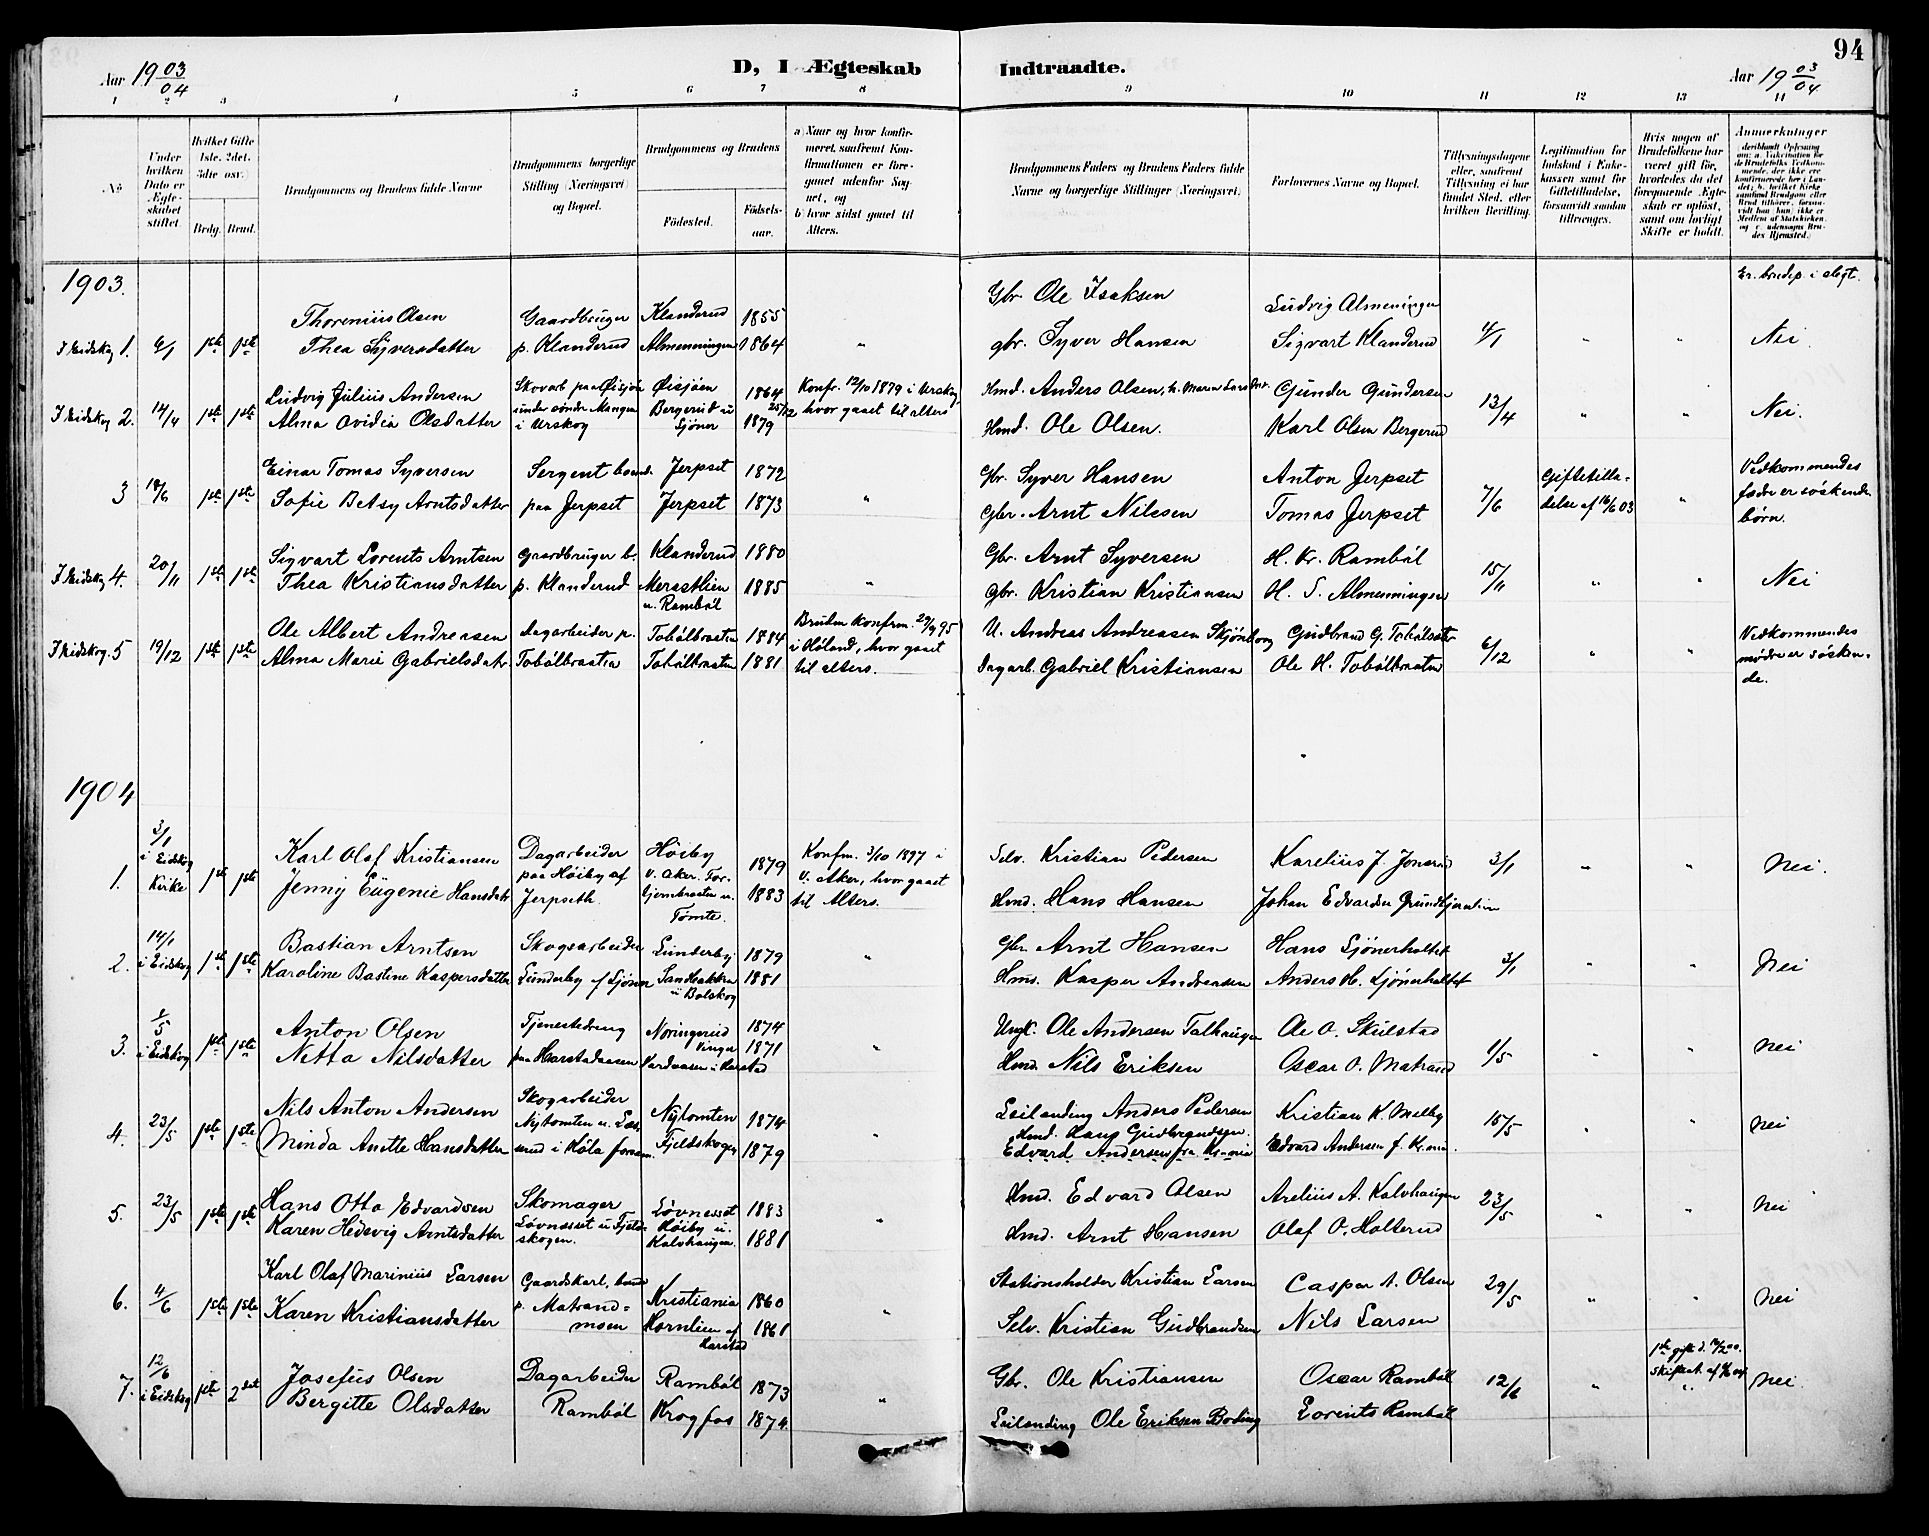 94
Aar 19 03/04
D, I Ægteskab
Indtraadte.
Aar 19 03/04
1 2 3 4 5 6 7 8 9 10 11 12 13 14
No
Under hvilken Dato er Ægteskabet stiftet.
Hvilket Gifte 1ste. 2det. 3dte osv.)
Brdg. Brud.
Brudgommens og Brudens fulde Navne
Brudgommens borgerlige Stilling (Næringsvei) og Bopæl.
Brudgommens og Brudens
Fødested.
Fødselsaar.
a) Naar og hvor konfirmeret, saafremt Konfirmationen er foregaaet udenfor Sognet, og
b) hvor sidst gaaet til Alters.
Brudgommens Faders og Brudens Faders fulde Navne og borgerlige Stillinger (Næringsvei).
Forlovernes Navne og Bopæl.
Tillysningsdagene eller, saafremt Tillysning ei har fundet Sted, efter hvilken Bevilling.
Legitimation for Indskud i Enkekassen samt for Giftetilladelse, forsaavidt saadan tiltrænges.
Hvis nogen af Brudefolkene har været gift før, hvorledes da det foregaaende Ægteskab er opløst, samt om lovligt Skifte er holdt.
Anmerkninger
1903.
Er brudep. i slegt.
I Eidskog 1. 6/1 1ste 1ste
Thorenius Olsen
Thea Syversdatter
Gaardbruger
p. Klanderud
Klanderud 1855
Almenningen 1864
"
Gbr. Ole Isaksen
gbr. Syver Hansen
Ludvig Almeningen
Sigvart Klanderud
4/1 " " Nei.
I Eidskog 2. 14/4 1ste 1ste
Ludvig Julius Andersen
Alma Ovidia Olsdatter
Skovarb. paa Øisjøen
under søndre Mangen
i Urskog
Øisjøen 1864
Bergerud u Sjøner 25/12 1879
Konfr. 12/10 1879 i Urskog,
hvor gaaet til alters
Hmd. Anders Olsen, h. Maren Larsdtr.
Hmd. Ole Olsen.
Gunder Gundersen
Karl Olsen Bergerud
13/4 " " Nei.
3 18/6 1ste 1ste
Einar Tomas Syversen
Sofie Betsy Arntsdatter
Sergent boend.
paa Jerpset
Jerpset 1872
Jerpset 1873
"
Gbr. Syver Hansen
Gbr. Arnt Nilsen
Anton Jerpset
Tomas Jerpset
7/6
Giftetilladelse af 16/6 03
"
Vedkommendes
fædre er søskende
børn.
I Eidskog 4. 20/11 1ste 1ste
Sigvart Lorents Arntsen
Thea Kristiansdatter
Gaardbruger b.
p. Klanderud
Klanderud 1880
Mersethlien 1885
u. Rambøl
"
Gbr. Arnt Syversen
Gbr. Kristian Kristiansen
H. Kr. Rambøl
H. S. Almenningen
15/11 " " Nei
I Eidskog. 5 19/12 1ste 1ste
Ole Albert Andreasen
Alma Marie Gabrielsdatr
Dagarbeider p.
Tobølbraatin
Tobølbraatin 1884
Tobølbraatin 1881
Brudm konfrm. 29/9 95
i Høland, hvor gaaet
til alters.
U. Andreas Andreassen Skjønborg
Dagarb. Gabriel Kristiansen
Gudbrand G. Tobølsætr
Ole H. Tobølbraaten
6/12 " "
Vedkommendes
mødre er søsken-
de.
1904
1. 3/1 i Eidskog Kirke 1ste 1ste
Karl Olaf Kristiansen
Jenny Eugenie Hansdatr
Dagarbeider
paa Høiby af
Jerpseth.
Høiby 1879
V. Aker. Tor-
bjørnbraaten u. 1883
Tomte.
Konfm. 3/10 1897 i
V. Aker, hvor gaaet
til Alters.
Selv. Kristian Pedersen
Hmd. Hans Hansen
Karelius J. Jonsrud
Johan Edvardsen
3/1 " " Nei.
2. 14/1 i Eidskog 1ste 1ste
Bastian Arntsen
Karoline Bastine Kaspersdatter
Skogsarbeider
Lunderby af Sjøner
Lunderby 1879
Sandbakken 1881
u Bolskog
"
Gbr Arnt Hansen
Hmd. Kasper Andreassen
Hans Sjønerholtet
Anders H. Sjønerholtet
3/1 " " Nei
3. 8/5 i Eidskog 1ste 1ste
Anton Olsen
Netta Nilsdatter
Tjenestedreng
paa Harstadaasen
Noringerud 1874
Vinger 1871
Vardaasen u Harstad
"
Ungk. Ole Andersen Talhaugen
Hmd. Nils Eriksen
Ole O. Skulstad
Oscar O. Matrand
1/5 " " Nei
4. 23/5 1ste 1ste
Nils Anton Andersen
Minda Anette Hansdatter
Skogarbeider
Nytomten
Nytomten 1874
Fjeldskogen 1879
"
Leilending Anders Pedersen
Hmd. Hans Gudbrandsen.
Edvard Andersen fra Kr-nia
Kristian K. Melby
Edvard Andersen f. Kr.nia
15/5 " " Nei
5. 23/5 1ste 1ste
Hans Otto Edvardsen
Karen Hedevig Arntsdatter
Skomager
Løvnesset u Fjeld-
skogen.
Løvnesset 1883
Høiby u. Kalvhaugen. 1881
"
Hmd. Edvard Olsen
Hmd. Arnt Hansen
Arelius A. Kalvhaugen
Olaf O. Holterud
23/5 " " Nei
6. 4/6 1ste 1ste
Karl Olaf Marinius Larsen
Karen Kristiansdatter
Gaardskarl, boend
p. Matrand-
moen
Kristiania 1860
Kornlien af 1861
Harstad
"
Stationsholder Kristian Larsen
Selv. Kristian Gudbrandsen
Caspar A. Olsen
Nils Larsen
29/5 " " Nei
7. 12/6 i Eidskog 1ste 2det
Josefus Olsen
Bergitte Olsdatter
Dagarbeider
Rambøl
Rambøl 1873
Krogfos 1874.
"
Gbr. Ole Kristiansen
Leilending Ole Eriksen Boding
Oscar Rambøl
Lorents Rambøl
12/6 "
1ste gifte d.
Skifteat. af
"
Nei